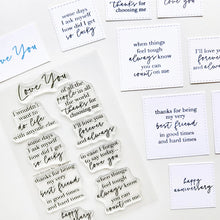 some days
I ask myself
how did I get
so lucky
thanks for
choosing me
Love You
when things
feel tough
always know
you can
count on me
I'll love you
forever
always
Love You
I wouldn't
want to
do life
with anyone else
of all the
people in all
the world
thanks for
choosing me
I'll love you
forever
and
always
thanks for being
my very
best friend
in good times
and hard times
in case I forget
to say today
love you
thanks for being
my very
best friend
in good times
and hard times
when things
feel tough
always know
you can
count on me
happy
anniversary
happy